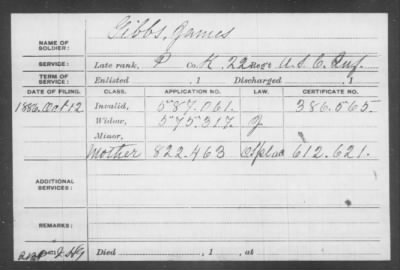 NAME OF SOLDIER: Gibbs, James
SERVICE: Late rank, P Co. K, 22 Reg't U.S.C. Inf.
TERM OF SERVICE: Enlisted , 1 Discharged , 1
DATE OF FILING. CLASS. APPLICATION NO. LAW. CERTIFICATE NO.
1886 Oct 12 Invalid, 587.061. 386.565.
Widow, 575.317. J
Minor,
Mother 822.463 612.621.
ADDITIONAL SERVICES:
REMARKS:
Died , 1 , at